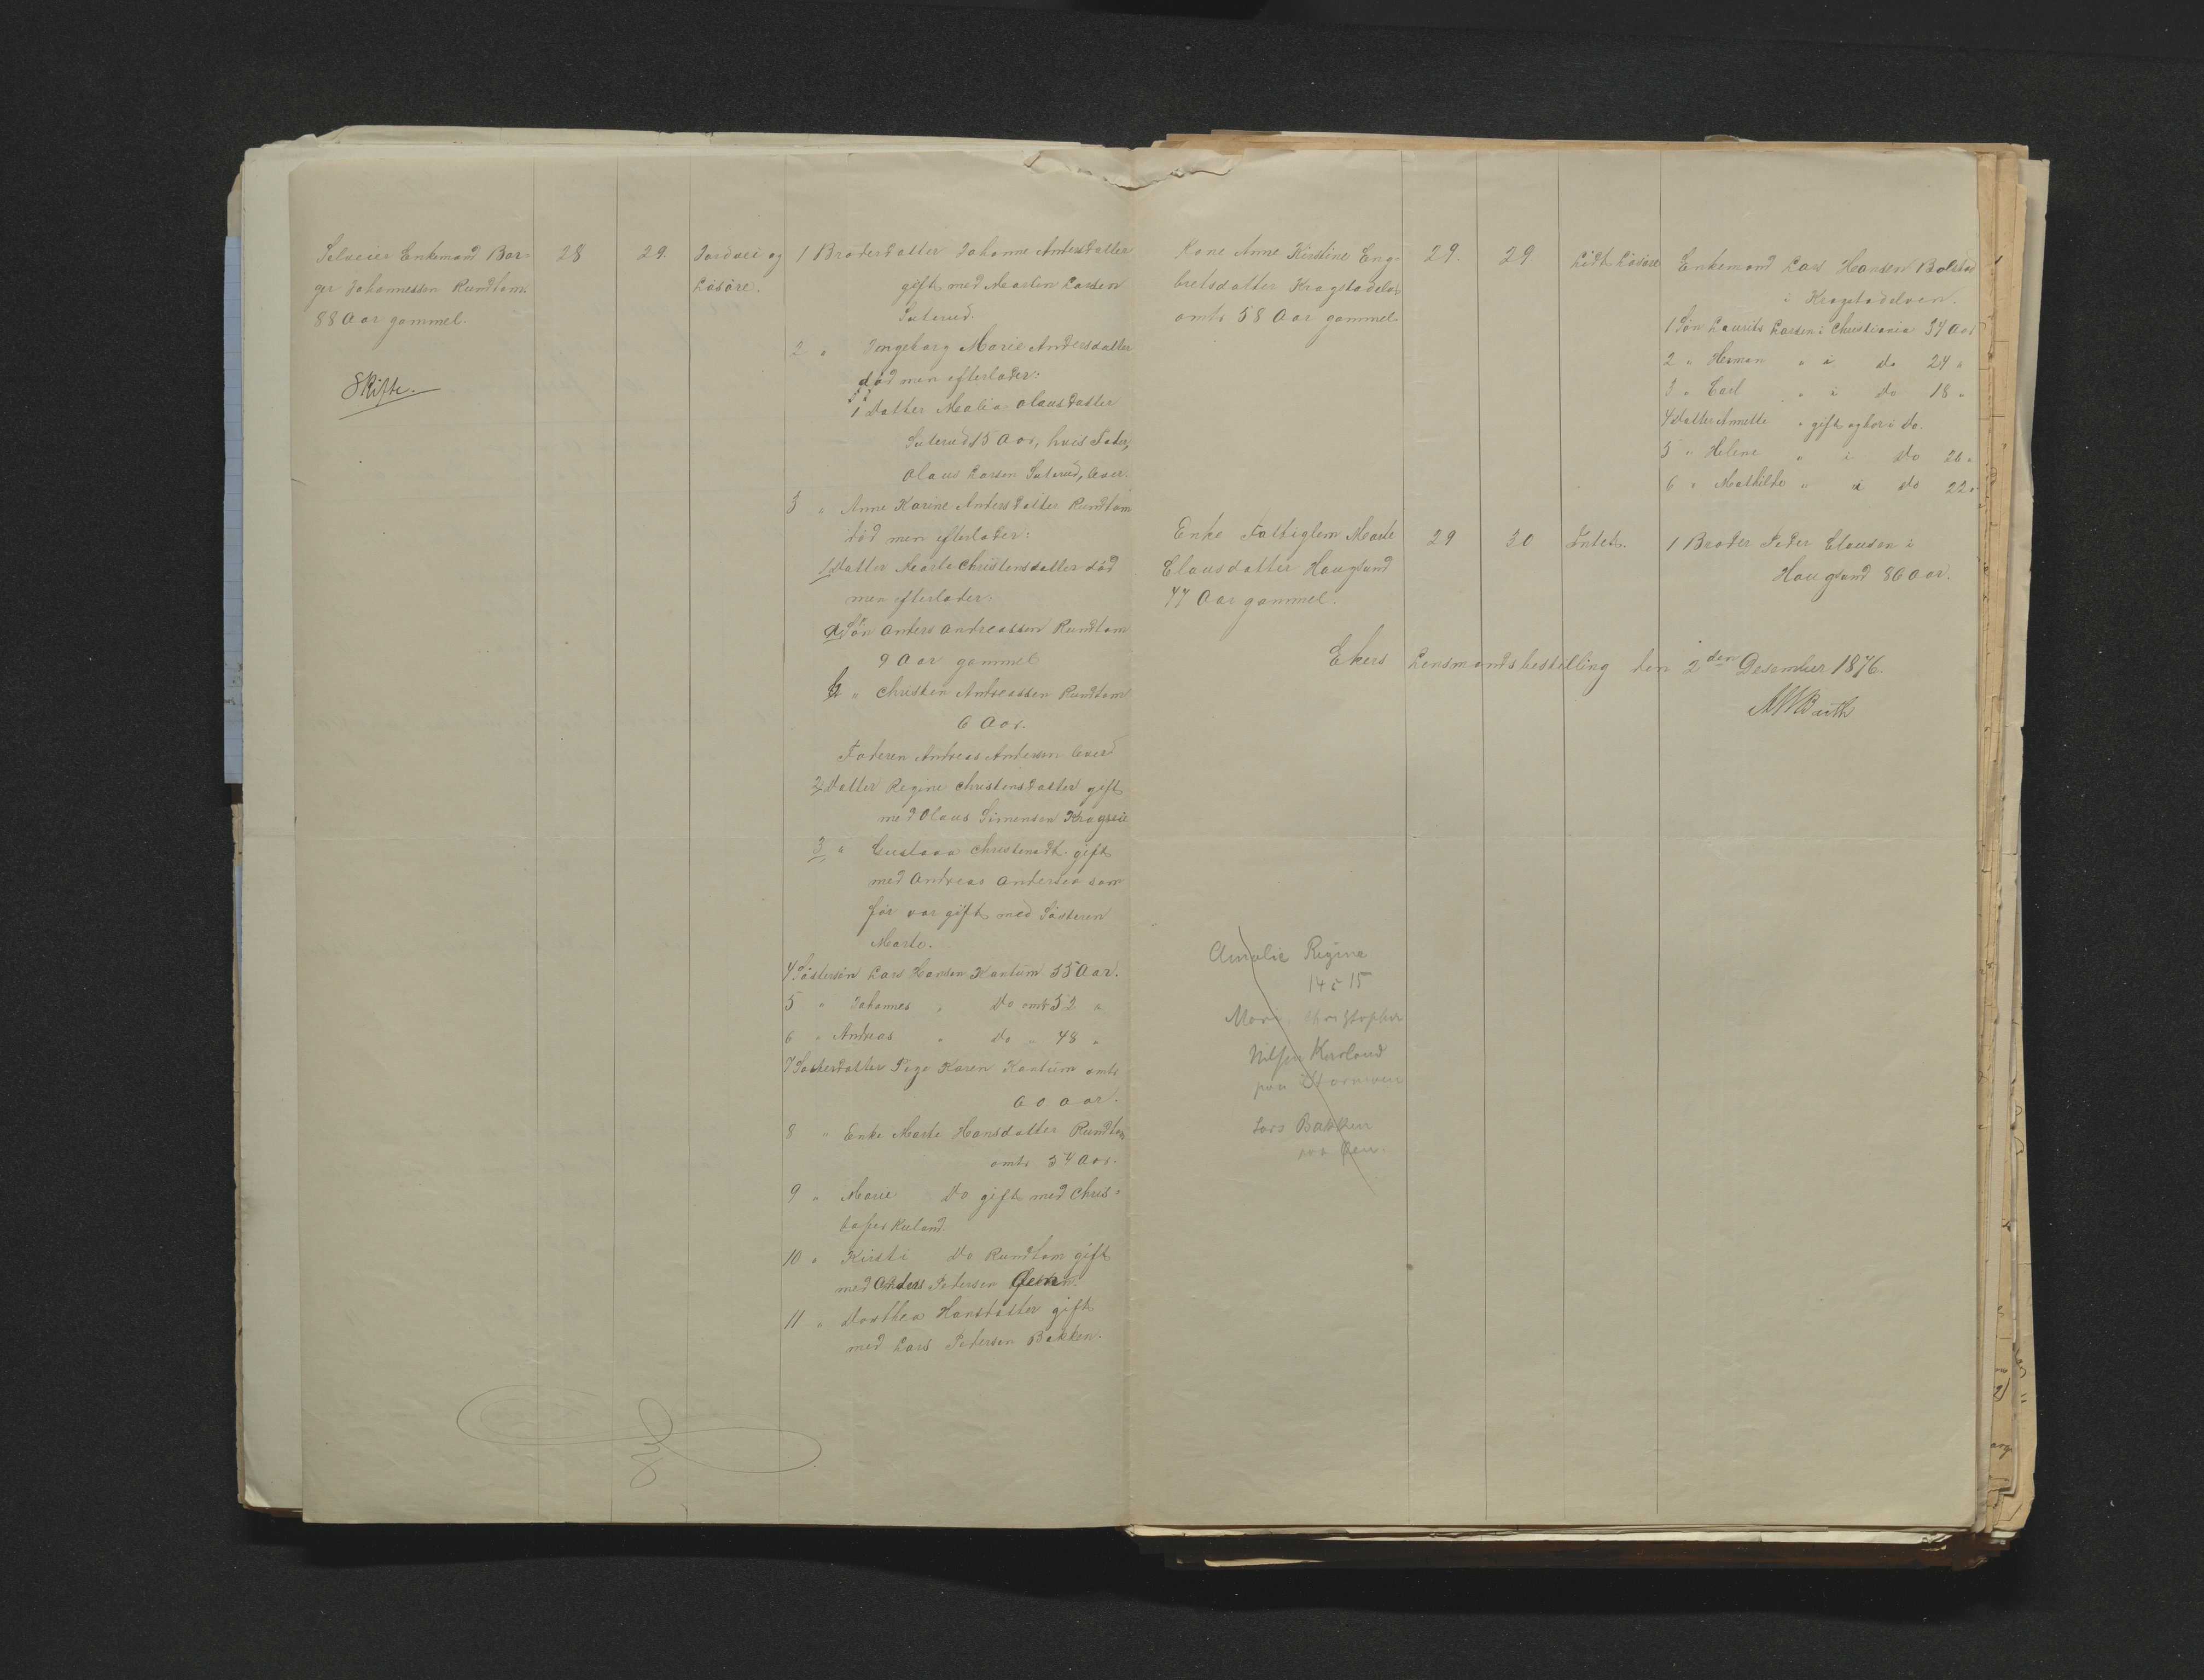 Selveier Enkemand Bør=
ger Johannessen Rundtom
88 Aar gammel.
Skifte.
28
29.
Jordvei og
Løsøre.
1 Broderdatter Johanne Andersdatter
gift med Martin Larsen
Sulerud.
2 " Ingeborg Marie Andersdatter
død men efterlader:
1 Datter Malia Olausdatter
Sulerud 15 Aar, hvis Fader,
Olaus Larsen Sulerud, lever.
3 " Anne Karine Andersdatter Rundtom
død men efterlader:
1 Datter Marte Christensdatter død
men efterlader:
a Søn Anders Andreassen Rundtom
9 Aar gammel
b " Christen Andreassen Rundtom
6 Aar.
Faderen Andreas Andersen lever
2 Datter Regine Christensdatter gift
med Olaus Simensen
3 " Gustava Christensdt. gift
med Andreas Andersen som
før var gift med Søsteren
Marte.
4 Søstersøn Lars Hansen Kantum 55 Aar.
5 " Johannes " Do omtr 52 "
6 " Andreas " Do " 48 "
7 Søsterdatter Pige Karen Kantum omtr
60 Aar.
8 " Enke Marte Hansdatter Rundtom
omtr. 54 Aar.
9 " Marie Do gift med Chris=
tofer Kuland
10 " Kirsti Do Rundtom gift
med Anders Petersen Øen.
11 " Dorthea Hansdatter gift
med Lars Petersen Bakken.
Kone Anne Kirstine Eng=
bretsdatter Krogstadelv
omtr 58 Aar gammel.
29.
29
Lidt Løsøre
Enkemand Lars Hansen Bolstad
i Krogstadelven.
1 Søn Laurits Larsen i Christiania 34 Aar
2 " Herman " i do 24 "
3 " Carl " i do 18 "
4 Datter Annette " gift og bor i do.
5 " Helene " i do 26 "
6 " Mathilde " i do 22 "
Enke Fattiglem Marte
Clausdatter Haugsund
77 Aar gammel.
29
30
Intet.
1 Broder Peder Clausen i
Haugsund 80 Aar.
Ekers Lensmandsbestilling den 2den Desember 1876.
MWBarth
Amalie Regine
14 & 15
Mari Christopher
Nilsen
paa
Lars Bakken
paa Øen.